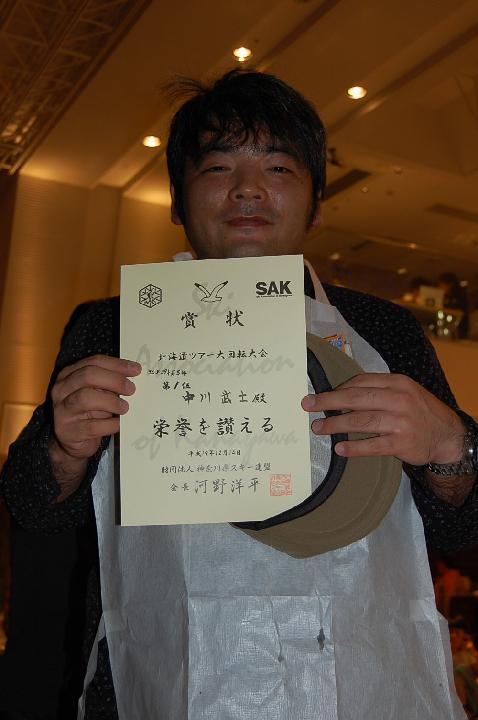 SAK
Ski Association of Kanagawa
賞状
北海道ツアー大回転大会
第1位
中川武士殿
栄誉を讃える
平成19年12月12日
財団法人 神奈川県スキー連盟
会長 河野洋平